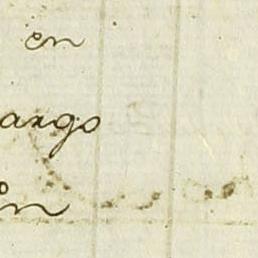 en
argo